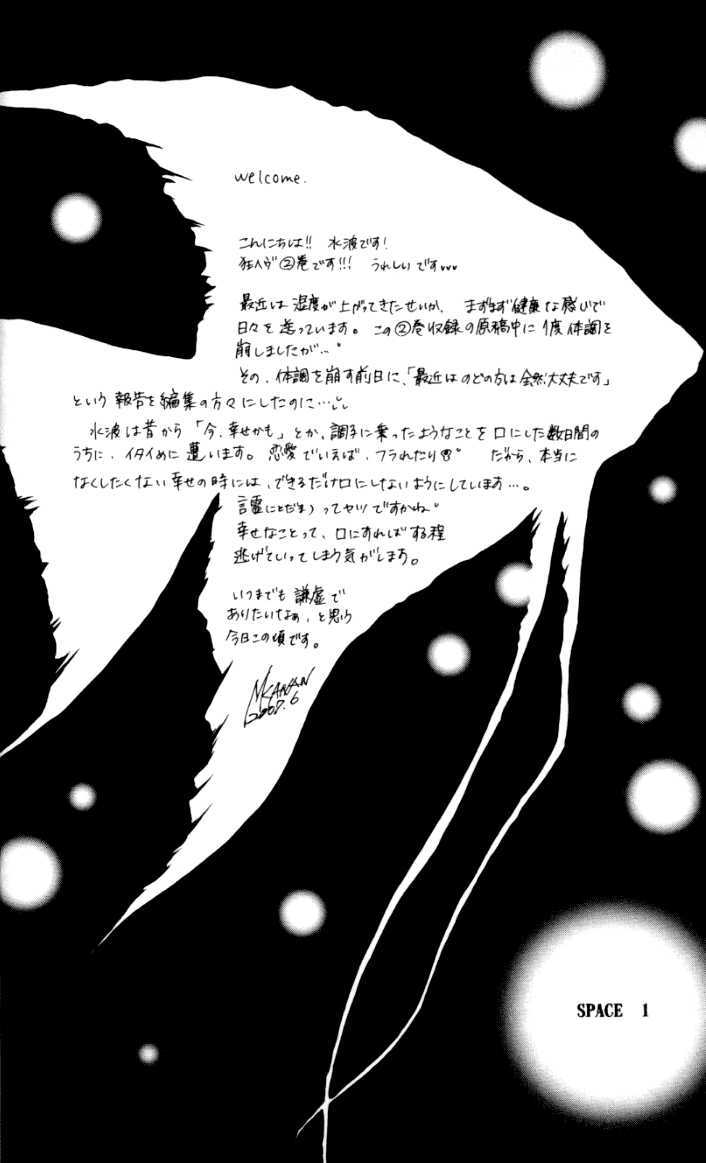 welcome.
こんにちは!! 水波です!
狂ヘヴ②巻です!!! うれしいです
最近は湿度が上がってきたせいか、まずまず健康な扱いで
日々を送っています。この②巻収録の原稿中に1度体調を
崩しましたが…。
その、体調を崩す前日に、「最近はのどの方は全然大丈夫です」
という報告を編集の方々にしたのに…
水波は昔から「今、幸せかも」とか、調子に乗ったようなことを口にした数日間の
うちに、イタイめに遭います。恋愛でいえば、フラれたり だから、本当に
なくしたくない幸せの時には、できるだけ口にしないようにしています…。
言霊(ことだま)ってヤツですかね。
幸せなことって、口にすればする程
逃げていってしまう気がします。
いつまでも謙虚で
ありたいなぁ、と思う
今日この頃です。
KANAN
2007.6
SPACE 1